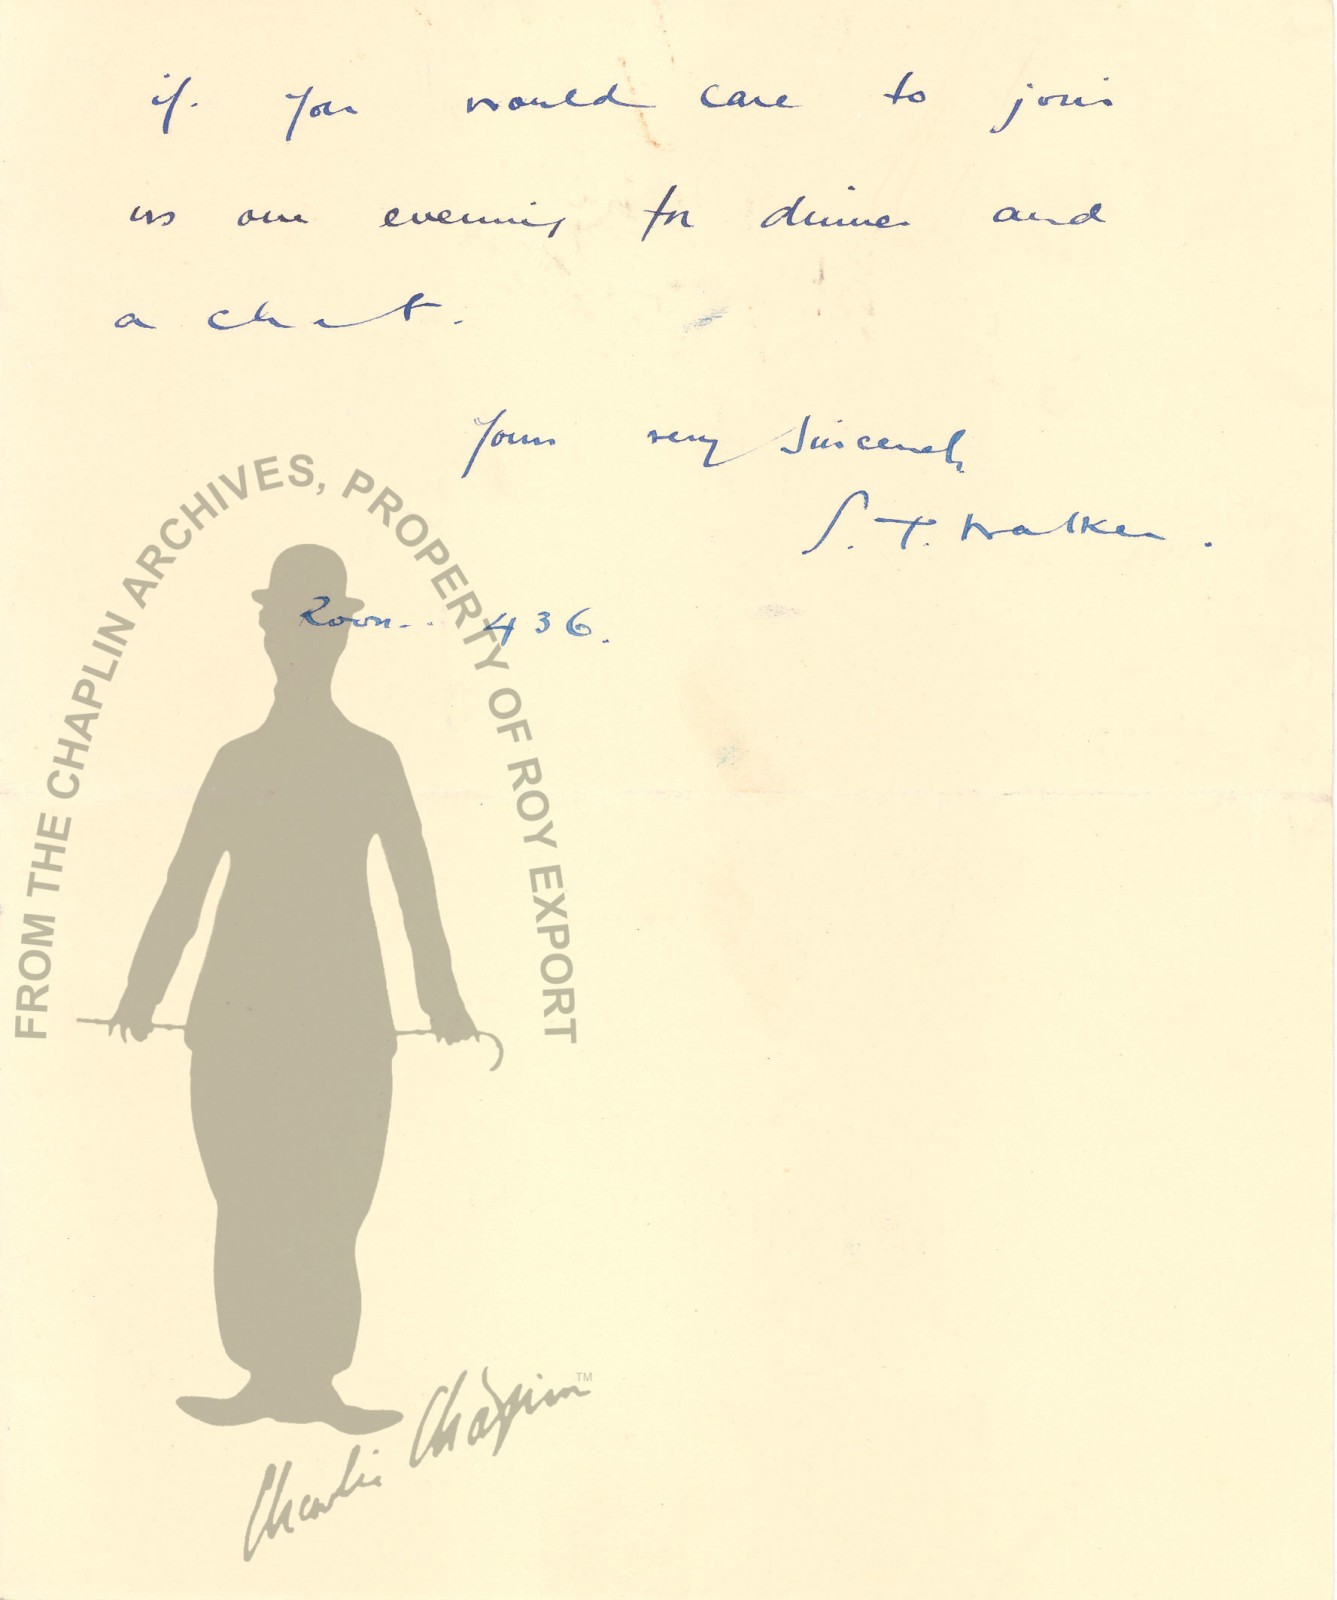 if you would care to join
us one evening for dinner and
a chat.
Yours very sincerely
S. T. Walker.
Room 436.
FROM THE CHAPLIN ARCHIVES, PROPERTY OF ROY EXPORT
Charlie Chaplin TM